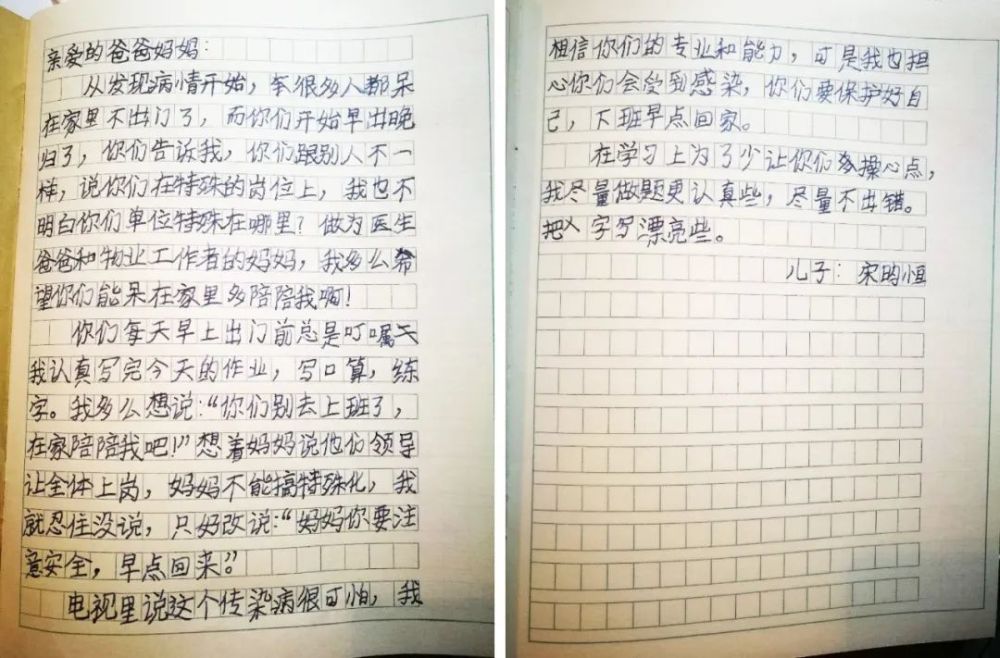 亲爱的爸爸妈妈：
从发现病情开始，很多人都呆
在家里不出门了，而你们开始早出晚
归了，你们告诉我，你们跟别人不一
样，说你们在特殊的岗位上，我也不
明白你们单位特殊在哪里？做为医生
爸爸和物业工作者的妈妈，我多么希
望你们能呆在家里多陪陪我啊！
你们每天早上出门前总是叮嘱
我认真写完今天的作业，写口算，练
字。我多么想说：“你们别去上班了，
在家陪陪我吧！”想着妈妈说他们领导
让全体上岗，妈妈不能搞特殊化，我
就忍住没说，只好改说：“妈妈你要注
意安全，早点回来。”
电视里说这个传染病很可怕，我
相信你们的专业和能力，可是我也担
心你们会受到感染，你们要保护好自
己，下班早点回家。
在学习上为了少让你们操心点，
我尽量做题更认真些，尽量不出错。
把字写漂亮些。
儿子：宋昀恒